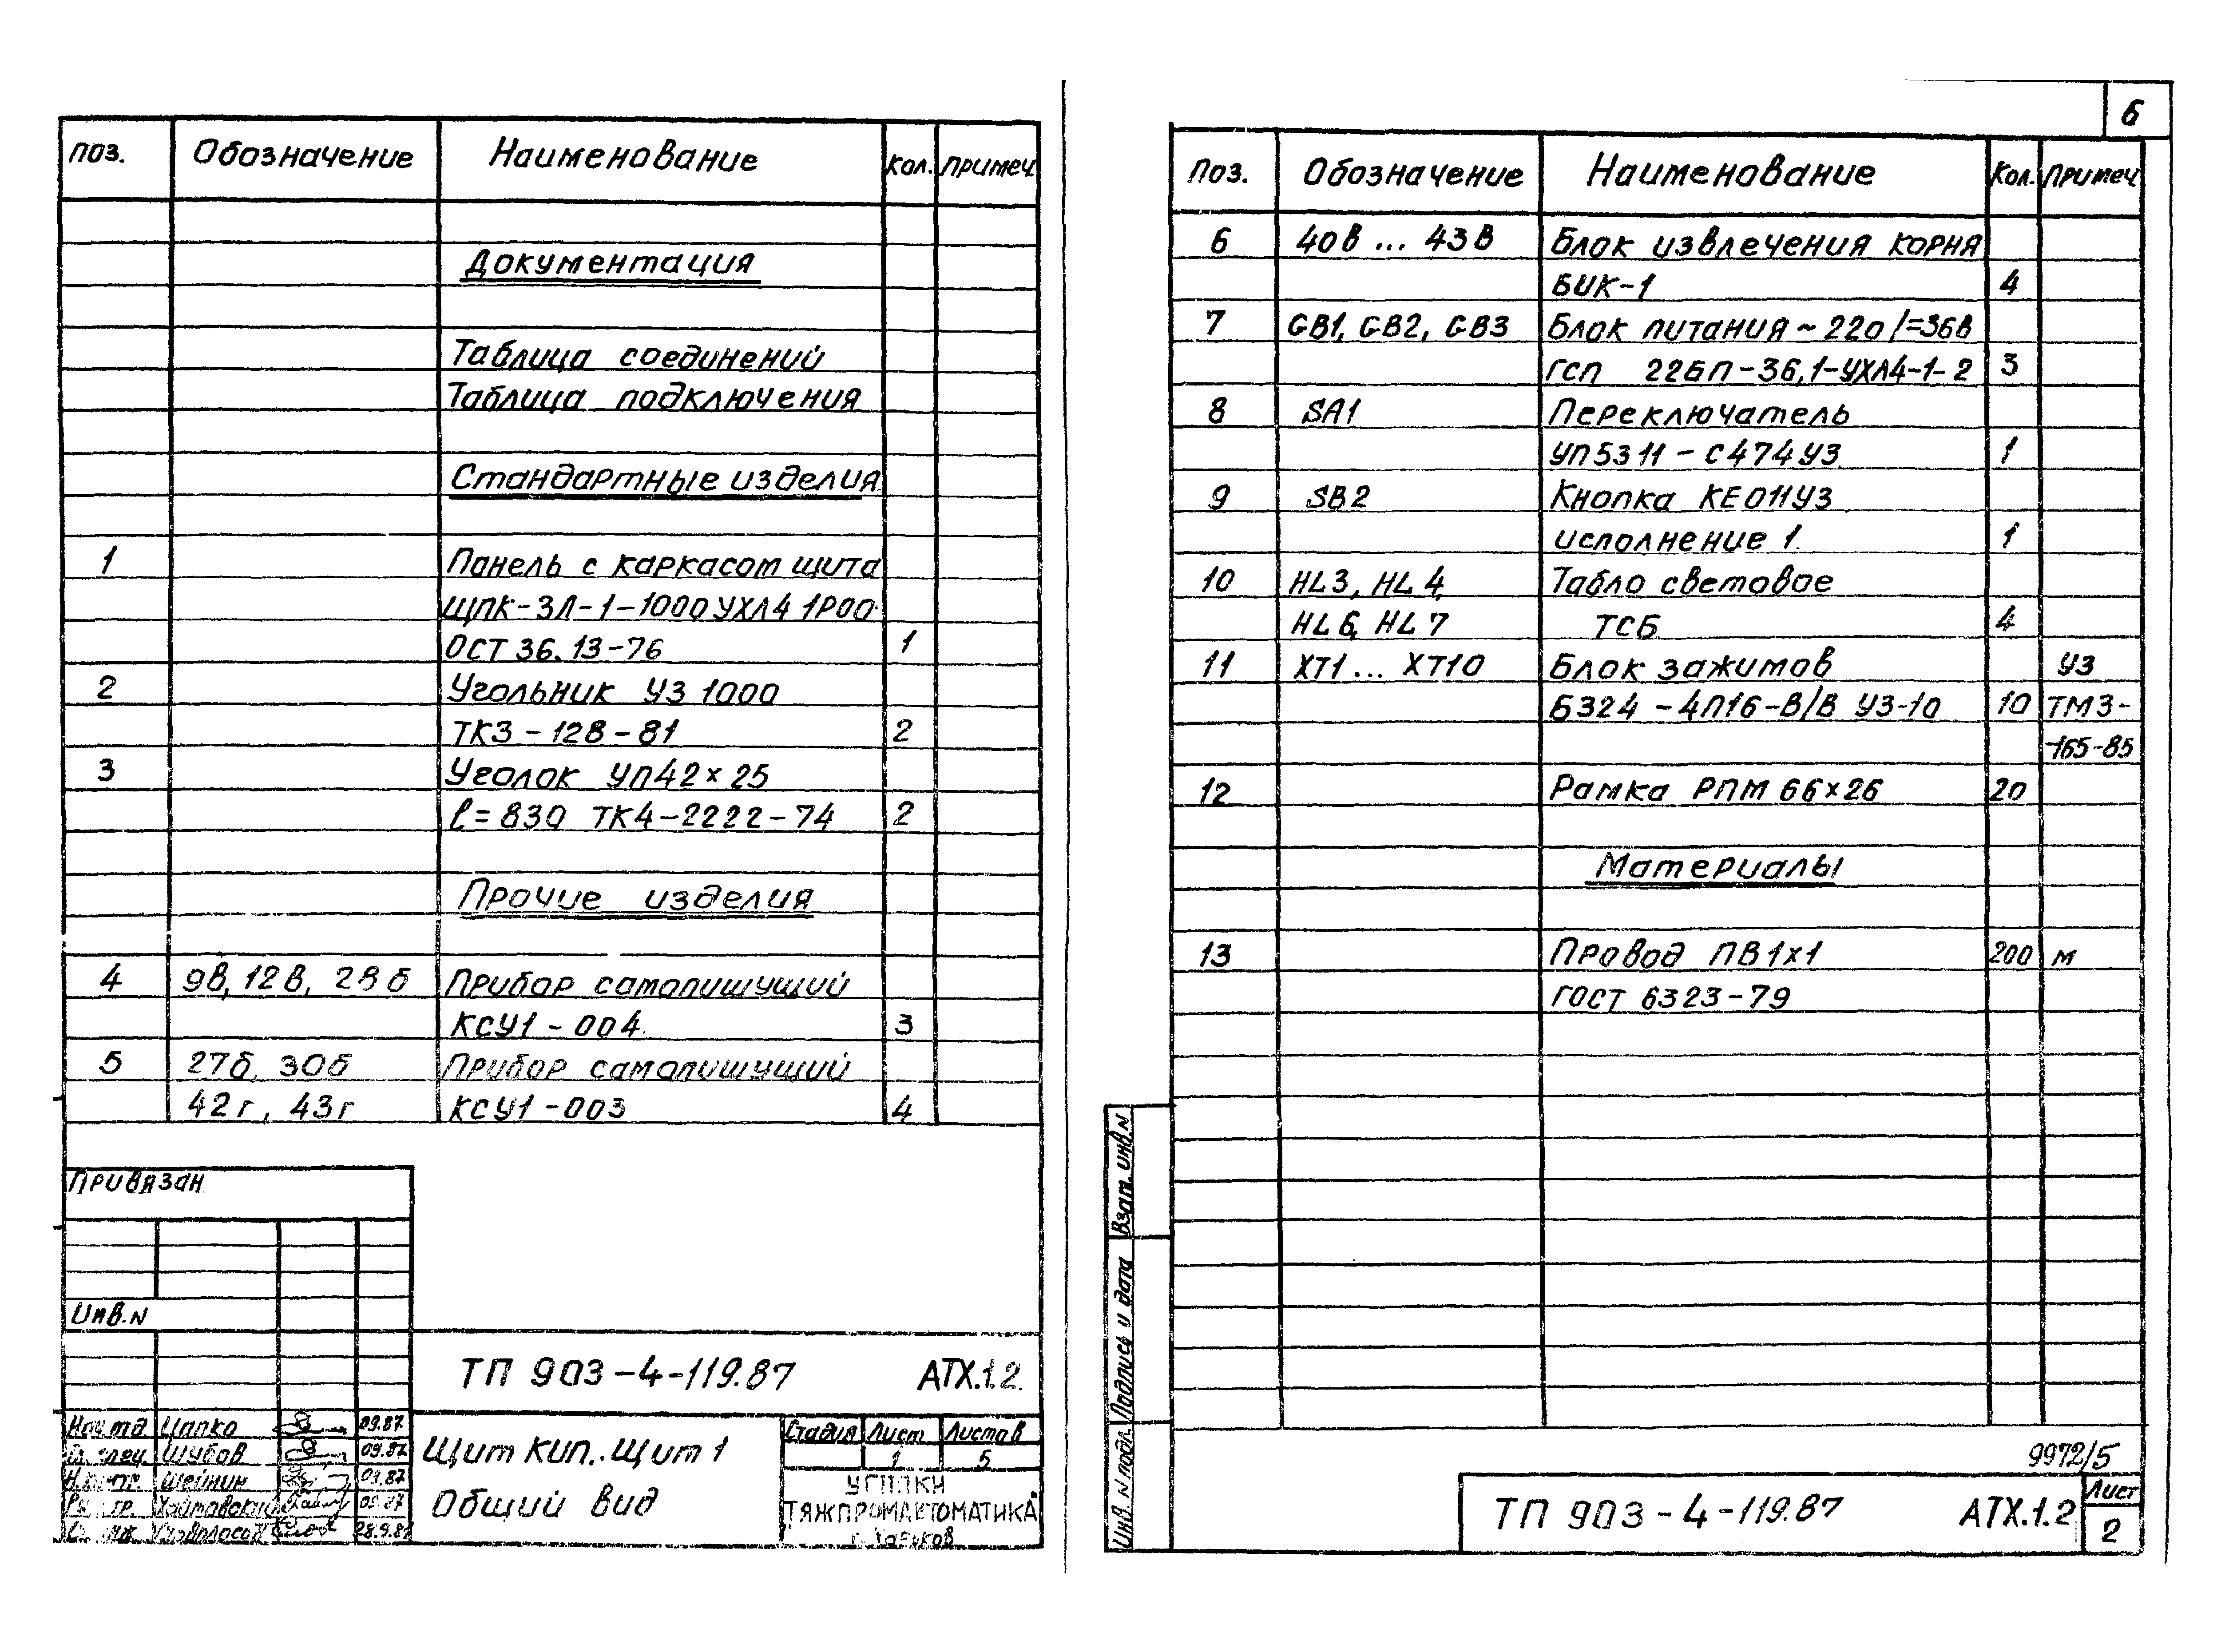 поз. Обозначение Наименование Кол. Примеч.
Документация
Таблица соединений
Таблица подключения
Стандартные изделия
1 Панель с каркасом щита
ЩПК-ЗЛ-1-1000 УХЛ4 1Р00
ОСТ 36.13-76 1
2 Угольник УЗ 1000
ТКЗ-128-81 2
3 Уголок УП42×25
ℓ=830 ТК4-2222-74 2
Прочие изделия
4 9в, 12в, 28б Прибор самопишущий
КСУ1-004 3
5 27б, 30б Прибор самопишущий
42г, 43г КСУ1-003 4
Привязан
Инв.N
ТП 903-4-119.87 АТХ.1.2.
Цапко 09.87
Шубов 09.87
Шейнин 09.87
28.9.87
Щит КИП. Щит 1
Общий вид
Стадия Лист Листов
1 5
ТЯЖПРОМАВТОМАТИКА
г. Харьков
6
Поз. Обозначение Наименование Кол. Примеч.
6 40в ... 43в Блок извлечения корня
БИК-1 4
7 GB1, GB2, GB3 Блок питания ~220/=36В
ГСП 22БП-36,1-УХЛ4-1-2 3
8 SA1 Переключатель
УП5311-С474У3 1
9 SB2 Кнопка КЕ011У3
исполнение 1 1
10 HL3, HL4, Табло световое
HL6, HL7 ТСБ 4
11 XT1 ... XT10 Блок зажимов У3
БЗ24-4П16-В/В У3-10 10 ТМ3-
-165-85
12 Рамка РПМ 66×26 20
Материалы
13 Провод ПВ1×1 200 м
ГОСТ 6323-79
Взам. инв.N
Подпись и дата
Инв. N подл.
9972/5
ТП 903-4-119.87 АТХ.1.2 Лист
2